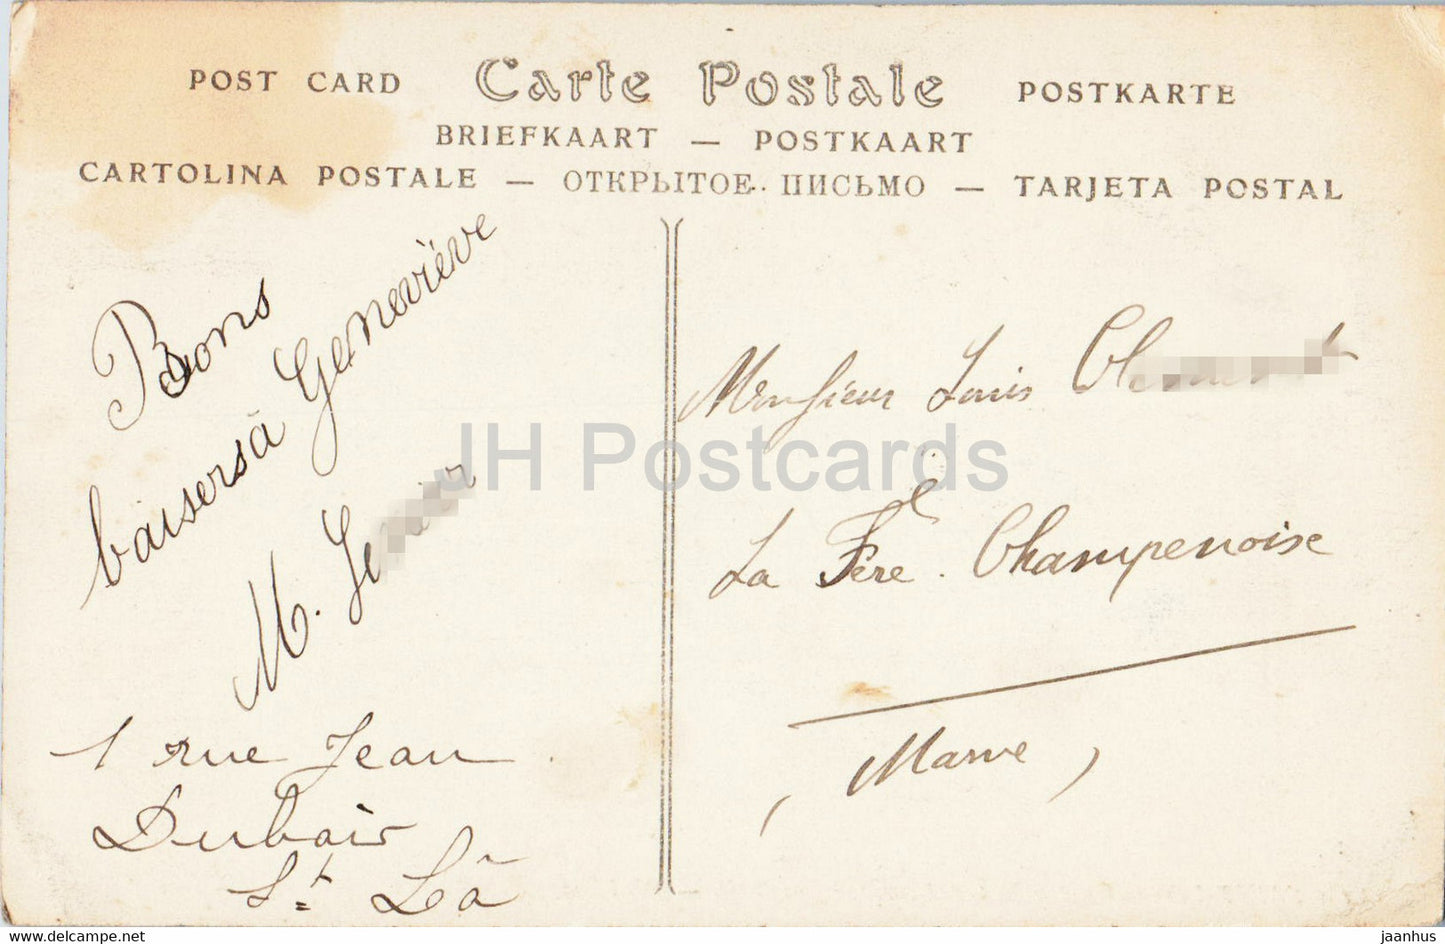 POST CARD Carte Postale POSTKARTE
BRIEFKAART — POSTKAART
CARTOLINA POSTALE — ОТКРЫТОЕ ПИСЬМО — TARJETA POSTAL
Bons
baisers à Geneviève
M.
1 rue Jean
Dubois
St Lô
Monsieur Louis
La Fère Champenoise
(Marne)
JH Postcards
www.delcampe.net
jaanhus